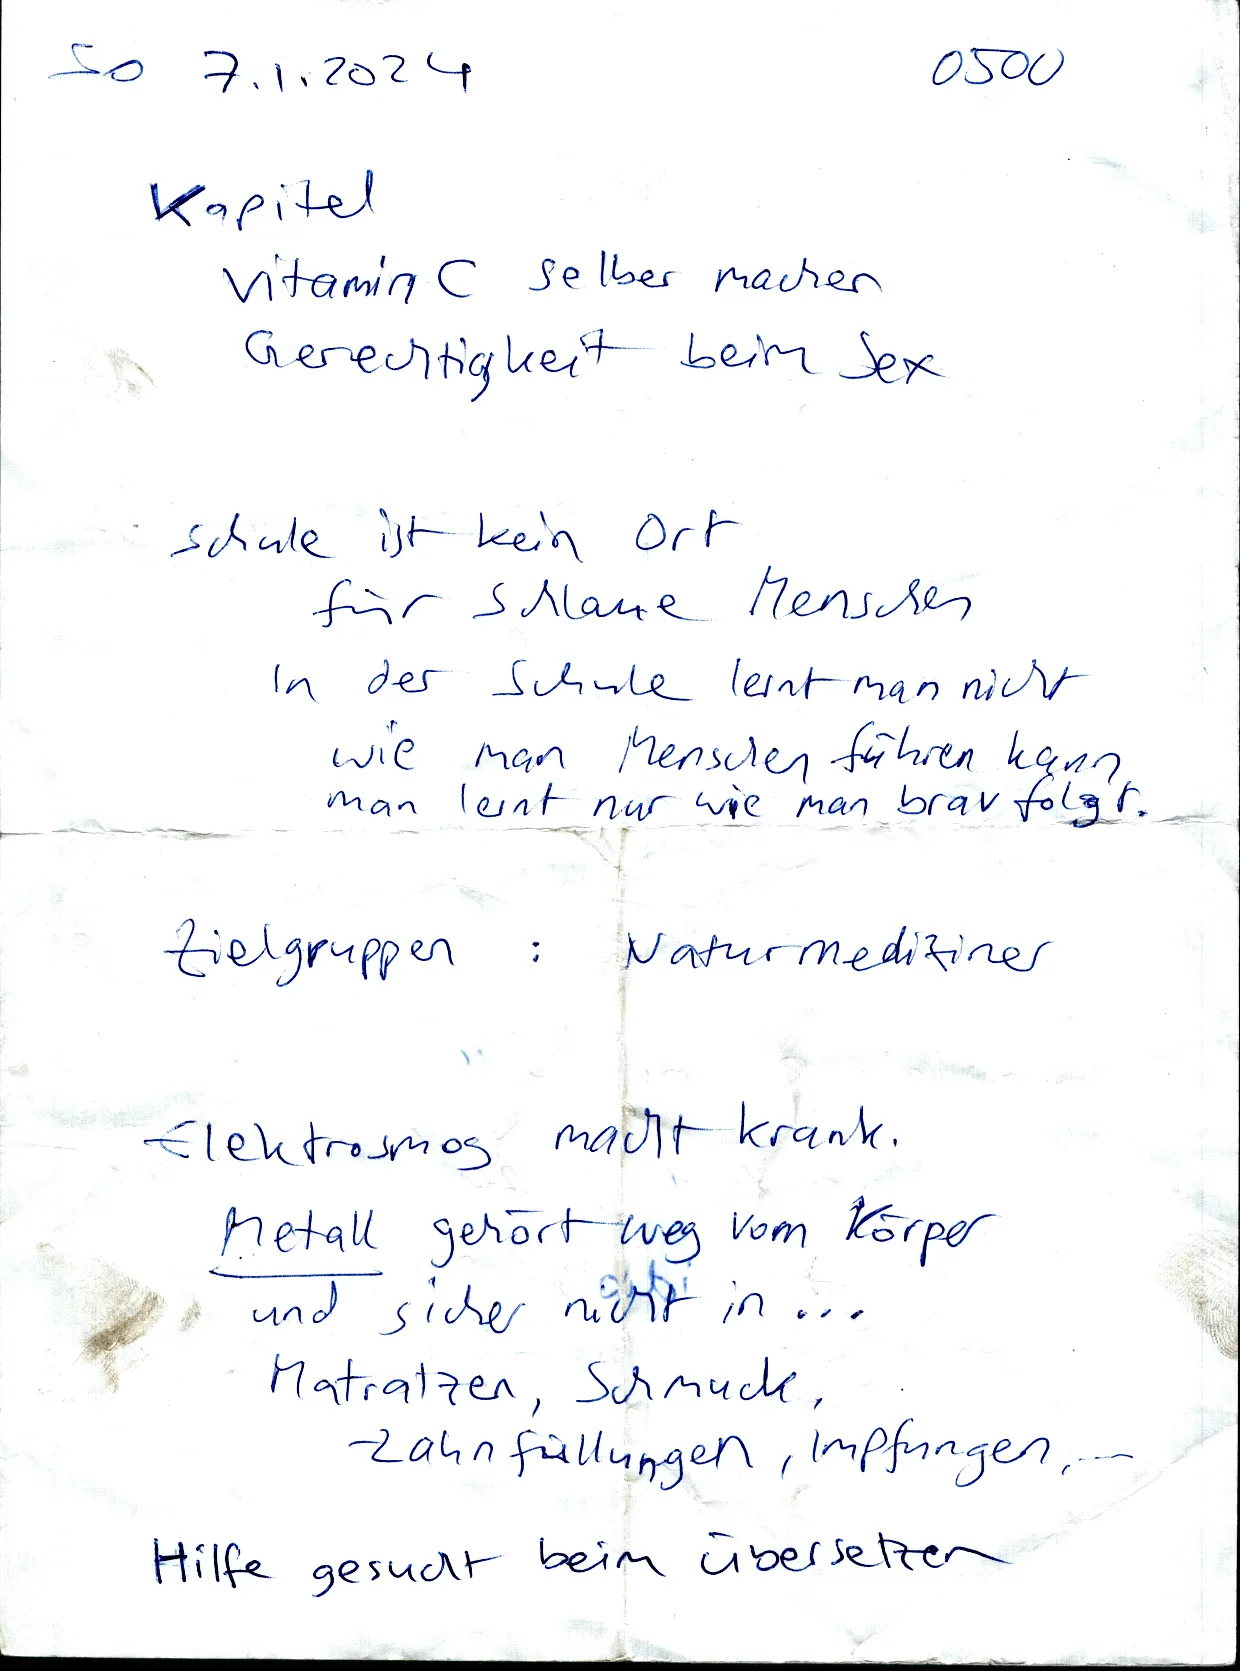 So 7.1.2024 0500
Kapitel
Vitamin C selber machen
Gerechtigkeit beim Sex
Schule ist kein Ort
für schlaue Menschen
In der Schule lernt man nicht
wie man Menschen führen kann
man lernt nur wie man brav folgt.
Zielgruppen : Naturmediziner
Elektrosmog macht krank.
Metall gehört weg vom Körper
und sicher nicht in ...
Matratzen, Schmuck,
Zahnfüllungen, Impfungen, ...
Hilfe gesucht beim übersetzen